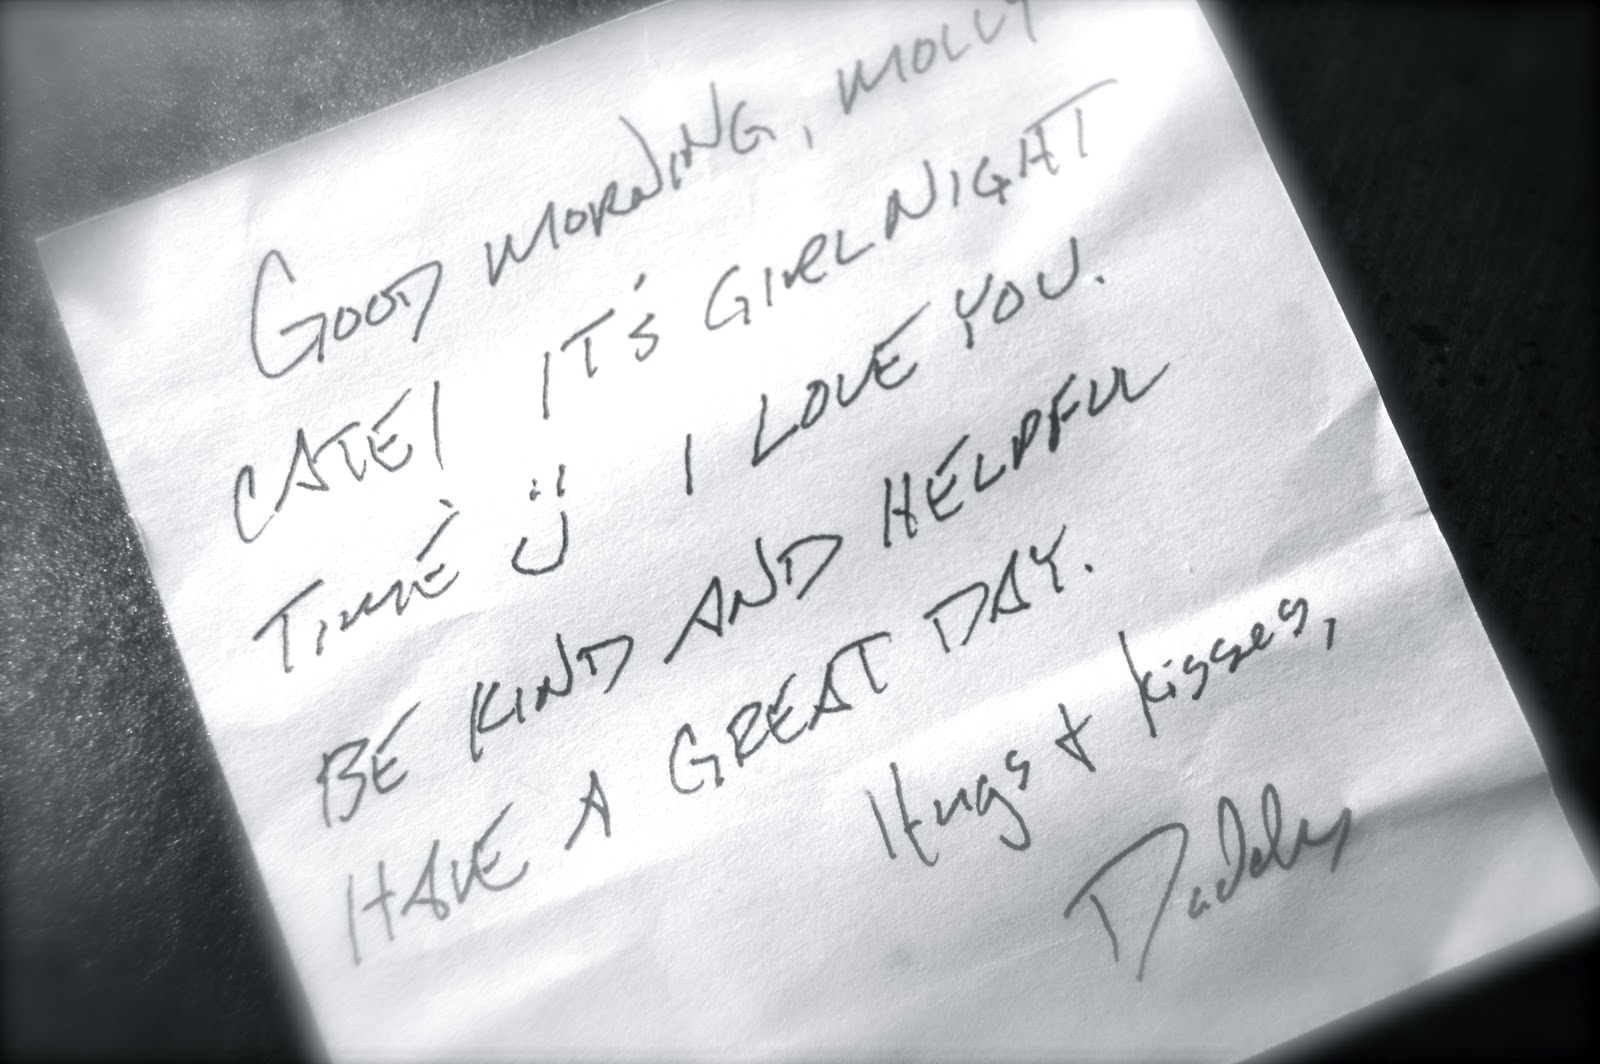 GOOD MORNING, MOLLY
CATE! IT'S GIRL NIGHT
TIME! :) I LOVE YOU.
BE KIND AND HELPFUL
HAVE A GREAT DAY.
Hugs & kisses,
Daddy